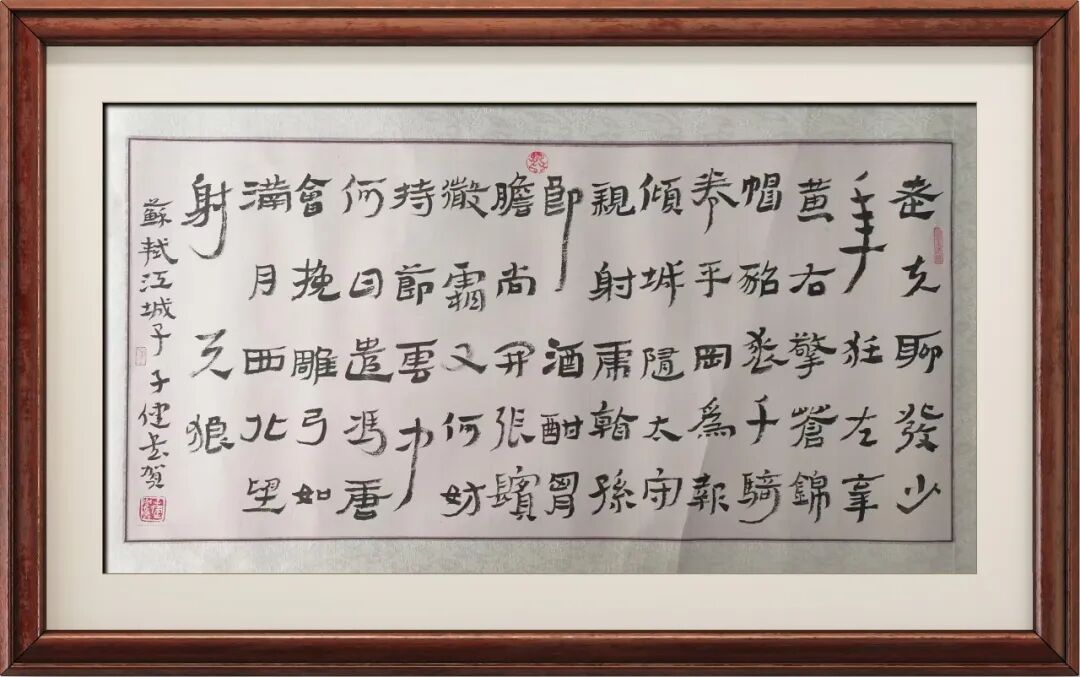 老夫聊發少
年狂左牽
黃右擎蒼錦
帽貂裘千騎
卷平岡為報
傾城隨太守
親射虎看孫
郎酒酣胷
膽尚開張鬢
微霜又何妨
持節雲中
何日遣馮唐
會挽雕弓如
滿月西北望
射天狼
蘇軾江城子 子健書賀